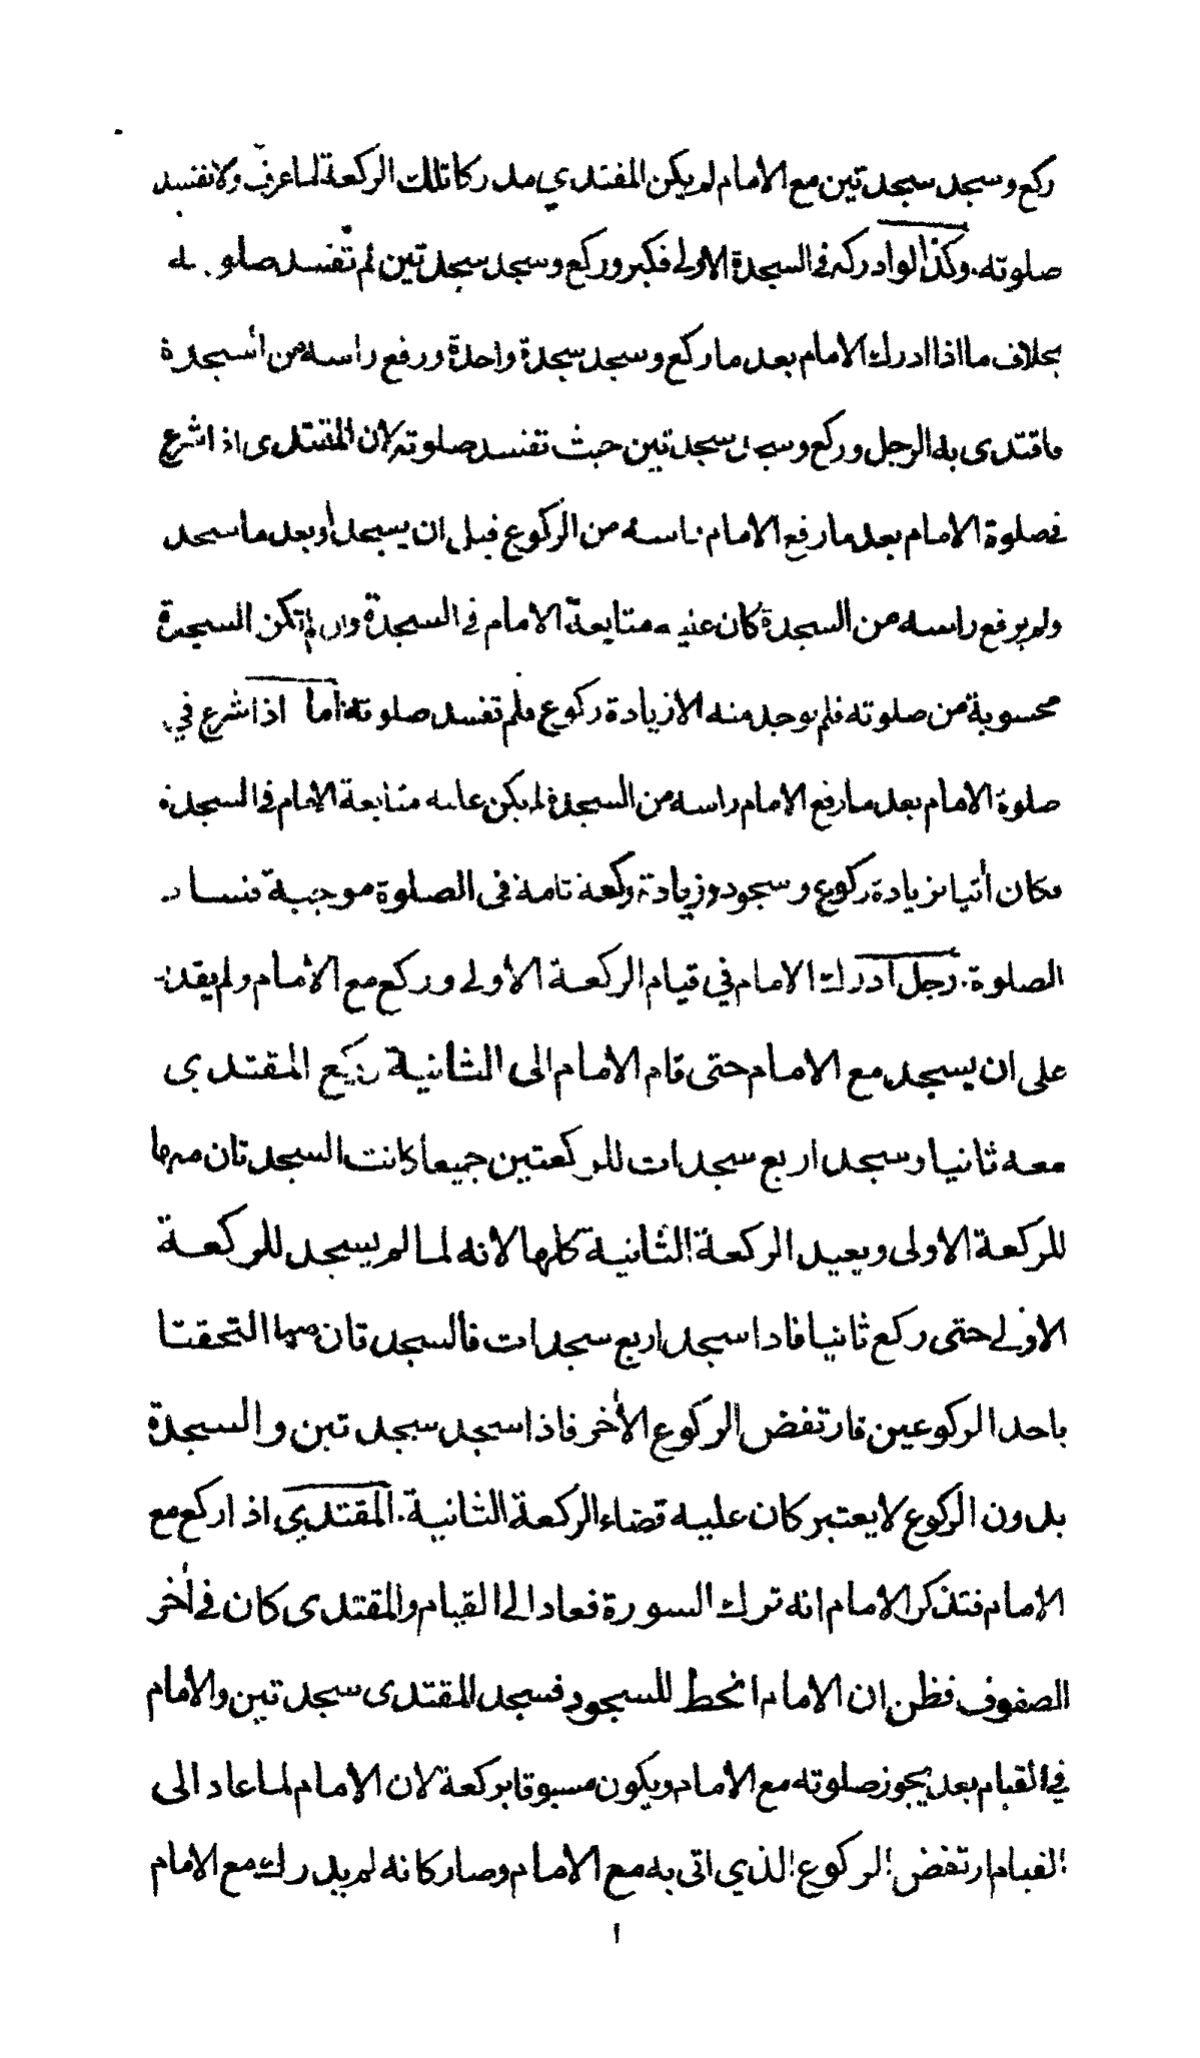 ركع وسجد سجدتين مع الامام لم يكن المقتدي مدركا تلك الركعة لما عرف ولا تفسد
صلوته. وكذا لو ادركه في السجدة الاولى فكبر وركع وسجد سجدتين لم تفسد صلو ته
بخلاف ما اذا ادرك الامام بعد ما ركع وسجد سجدة واحدة ورفع راسه من السجدة
فاقتدى به الرجل وركع وسجد سجدتين حيث تفسد صلوته لان المقتدى اذا شرع
في صلوة الامام بعد ما رفع الامام راسه من الركوع قبل ان يسجد أو بعد ما سجد
ولم يرفع راسه من السجدة كان عليه متابعة الامام في السجدة وان لم تكن السجدة
محسوبة من صلوته فلم يوجد منه الا زيادة ركوع فلم تفسد صلوته أما اذا شرع في
صلوة الامام بعد ما رفع الامام راسه من السجدة لم يكن عليه متابعة الامام في السجدة
فكان أتيا بزيادة ركوع وسجود وزيادة ركعة تامة في الصلوة موجبة فساد
الصلوة. رجل أدرك الامام في قيام الركعة الأولى وركع مع الأمام ولم يقدر
على ان يسجد مع الامام حتى قام الامام الى الثانية ركع المقتدي
معه ثانيا وسجد اربع سجدات للركعتين جميعا كانت السجدتان منها
للركعة الاولى ويعيد الركعة الثانية كلها لانه لما لم يسجد للركعة
الاولى حتى ركع ثانيا فاذا سجد اربع سجدات فالسجدتان منها التحقتا
باحد الركوعين فارتفض الركوع الأخر فاذا سجد سجدتين والسجدة
بدون الركوع لا يعتبر كان عليه قضاء الركعة الثانية. المقتدي اذا ركع مع
الامام فتذكر الامام انه ترك السورة فعاد الى القيام والمقتدى كان في أخر
الصفوف فظن ان الامام انحط للسجود فسجد المقتدى سجدتين والامام
في القيام بعد يجوز صلوته مع الامام ويكون مسبوقا بركعة لان الامام لما عاد الى
القيام ارتفض الركوع الذي اتى به مع الامام وصار كانه لم يدرك مع الامام
ا